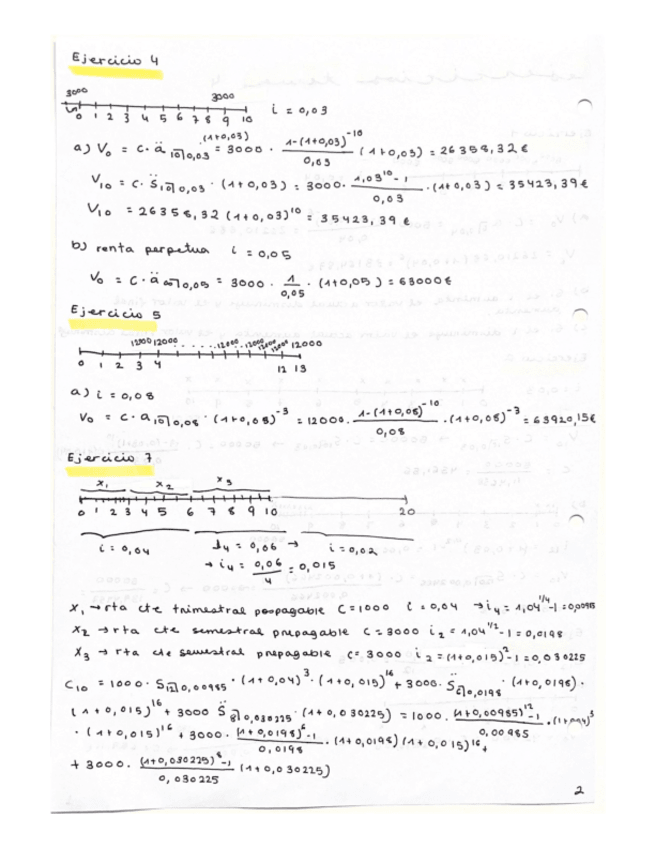 Ejercicio 4
3000 3000
0 1 2 3 4 5 6 7 8 9 10 i = 0,03
(1+0,03)
a) V₀ = C · ä 10|0,03 = 3000 · 1-(1+0,03)⁻¹⁰ / 0,03 (1+0,03) = 26358,32 €
V₁₀ = C · S 10|0,03 · (1+0,03) = 3000 · 1,03¹⁰-1 / 0,03 · (1+0,03) = 35423,39 €
V₁₀ = 26358,32 (1+0,03)¹⁰ = 35423,39 €
b) renta perpetua i = 0,05
V₀ = C · ä ∞|0,05 = 3000 · 1 / 0,05 · (1+0,05) = 63000 €
Ejercicio 5
12000 12000 ........ 12000 12000 12000 12000 12000
0 1 2 3 4 12 13
a) i = 0,08
V₀ = C · a 10|0,08 · (1+0,08)⁻³ = 12000 · 1-(1+0,08)⁻¹⁰ / 0,08 · (1+0,08)⁻³ = 63920,15 €
Ejercicio 7
x₁ x₂ x₃
0 1 2 3 4 5 6 7 8 9 10 20
i = 0,04 J₄ = 0,06 → i = 0,02
→ i₄ = 0,06 / 4 = 0,015
X₁ → rta cte trimestral pospagable C=1000 i = 0,04 → i₄ = 1,04^1/4 -1 = 0,00985
X₂ → rta cte semestral prepagable C = 3000 i₂ = 1,04^1/2 -1 = 0,0198
X₃ → rta cte semestral prepagable C= 3000 i₂ = (1+0,015)²-1 = 0,030225
C₁₀ = 1000 · S 12|0,00985 · (1+0,04)³ · (1+0,015)¹⁶ + 3000 · S̈ 6|0,0198 · (1+0,0198) ·
(1+0,015)¹⁶ + 3000 S̈ 8|0,030225 · (1+0,030225) = 1000 · (1+0,00985)¹²-1 / 0,00985 · (1+0,04)³
· (1+0,015)¹⁶ + 3000 · (1+0,0198)⁶-1 / 0,0198 · (1+0,0198) (1+0,015)¹⁶ +
+ 3000 · (1+0,030225)⁸-1 / 0,030225 (1+0,030225)
2